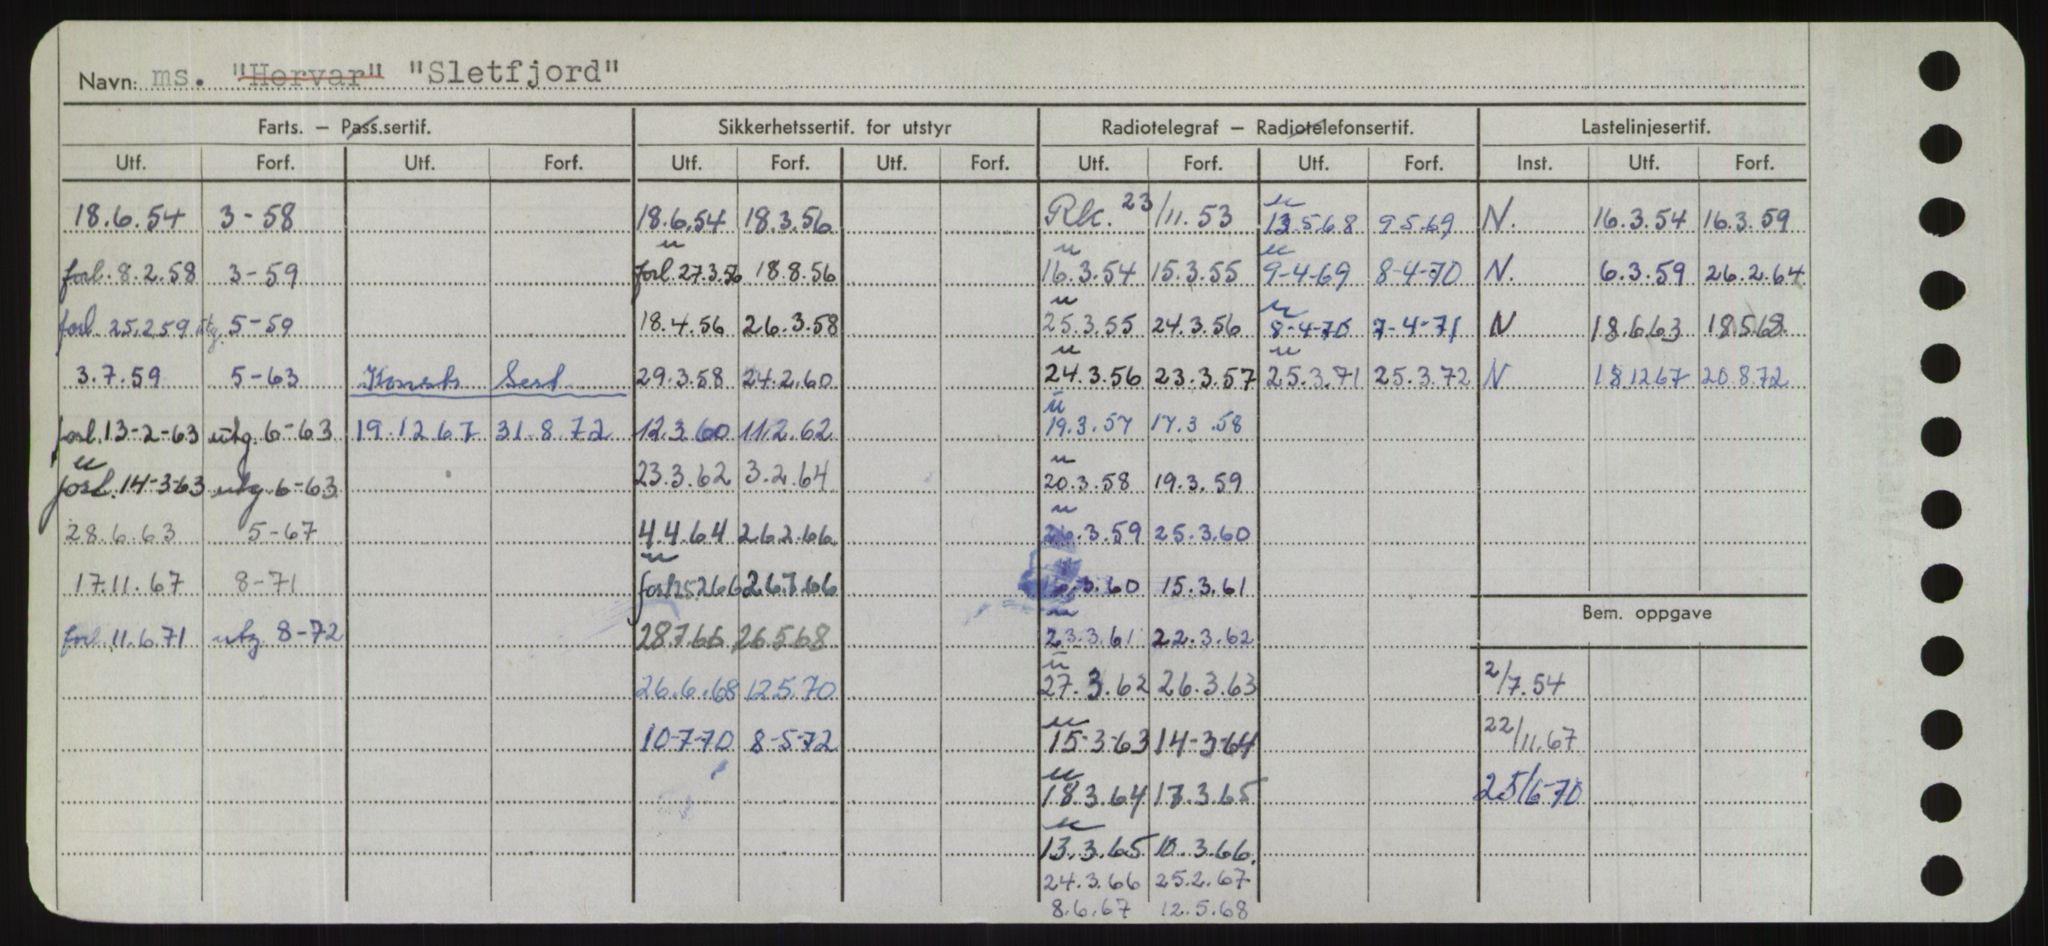 Navn: ms. "Horvar" "Sletfjord"
Farts. – Pass.sertif. Sikkerhetssertif. for utstyr Radiotelegraf – Radiotelefonsertif. Lastelinjesertif.
Utf. Forf. Utf. Forf. Utf. Forf. Utf. Forf. Utf. Forf. Utf. Forf. Inst. Utf. Forf.
18.6.54 3-58 18.6.54 18.3.56 Rk. 23/11.53 13.5.68 9.5.69 N. 16.3.54 16.3.59
forl. 8.2.58 3-59 forl. 27.3.56 18.8.56 16.3.54 15.3.55 9-4-69 8-4-70 N. 6.3.59 26.2.64
forl. 25.2.59 utg. 5-59 18.4.56 26.3.58 25.3.55 24.3.56 8-4-70 7-4-71 N 18.6.63 18.5.68.
3.7.59 5-63 Konstr. Sert. 29.3.58 24.2.60 24.3.56 23.3.57 25.3.71 25.3.72 N 18.12.67 20.8.72
forl. 13-2-63 utg. 6-63 19.12.67 31.8.72 12.3.60 11.2.62 19.3.57 17.3.58
forl. 14-3-63 utg 6-63 23.3.62 3.2.64 20.3.58 19.3.59
28.6.63 5-67 4.4.64 26.2.66 26.3.59 25.3.60
17.11.67 8-71 forl. 15.2.66 26.7.66 .3.60 15.3.61
Bem. oppgave
forl. 11.6.71 utg. 8-72 28.7.66 26.5.68 23.3.61 22.3.62
26.6.68 12.5.70 27.3.62 26.3.63 2/7.54
10-7-70 8-5-72 15-3-63 14-3-64 22/11.67
18.3.64 17.3.65 25/6-70
13.3.65 10.3.66.
24.3.66 25.2.67
8.6.67 12.5.68